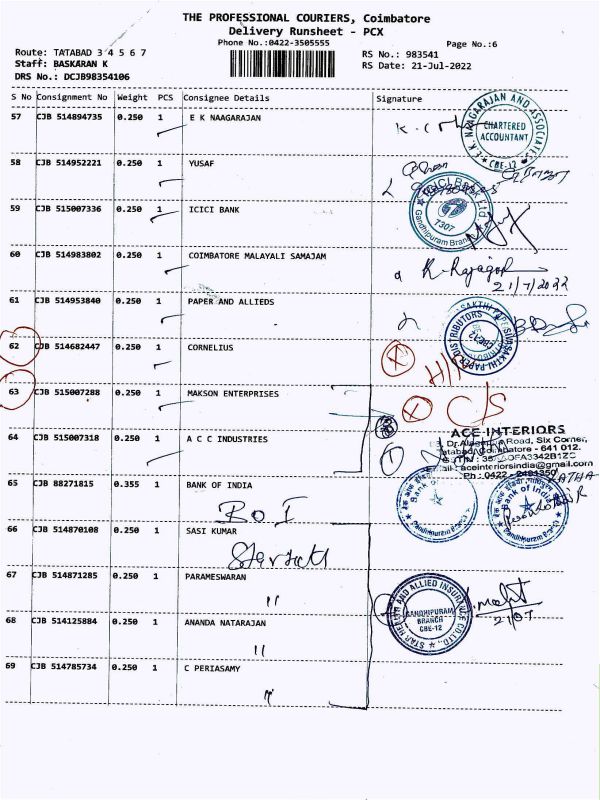 THE PROFESSIONAL COURIERS, Coimbatore
Delivery Runsheet - PCX
Phone No.:0422-3505555
Page No.:6
Route: TATABAD 3 4 5 6 7
RS No.: 983541
Staff: BASKARAN K
RS Date: 21-Jul-2022
DRS No.: DCJB98354106
S No Consignment No Weight PCS Consignee Details Signature
57 CJB 514894735 0.250 1 E K NAAGARAJAN
CHARTERED
ACCOUNTANT
CBE-12
58 CJB 514952221 0.250 1 YUSAF
59 CJB 515007336 0.250 1 ICICI BANK
ICICI Bank Ltd.
7307
Gandhipuram Branch
60 CJB 514983802 0.250 1 COIMBATORE MALAYALI SAMAJAM
K-Rajagop
21/7/2022
61 CJB 514953840 0.250 1 PAPER AND ALLIEDS
SIVASAKTHI PAPER DISTRIBUTORS
62 CJB 514682447 0.250 1 CORNELIUS
63 CJB 515007288 0.250 1 MAKSON ENTERPRISES
C/S
64 CJB 515007318 0.250 1 A C C INDUSTRIES
ACE INTERIORS
Road, Six Corner,
Tatabad, Coimbatore - 641 012.
aceinteriorsindia@gmail.com
65 CJB 88271815 0.355 1 BANK OF INDIA
BOI
Bank of India
Gandhipuram Branch
66 CJB 514870108 0.250 1 SASI KUMAR
67 CJB 514871285 0.250 1 PARAMESWARAN
"
STAR HEALTH AND ALLIED INSURANCE CO.LTD.,
GANDHIPURAM
BRANCH
CBE-12
21/07
68 CJB 514125884 0.250 1 ANANDA NATARAJAN
"
69 CJB 514785734 0.250 1 C PERIASAMY
"